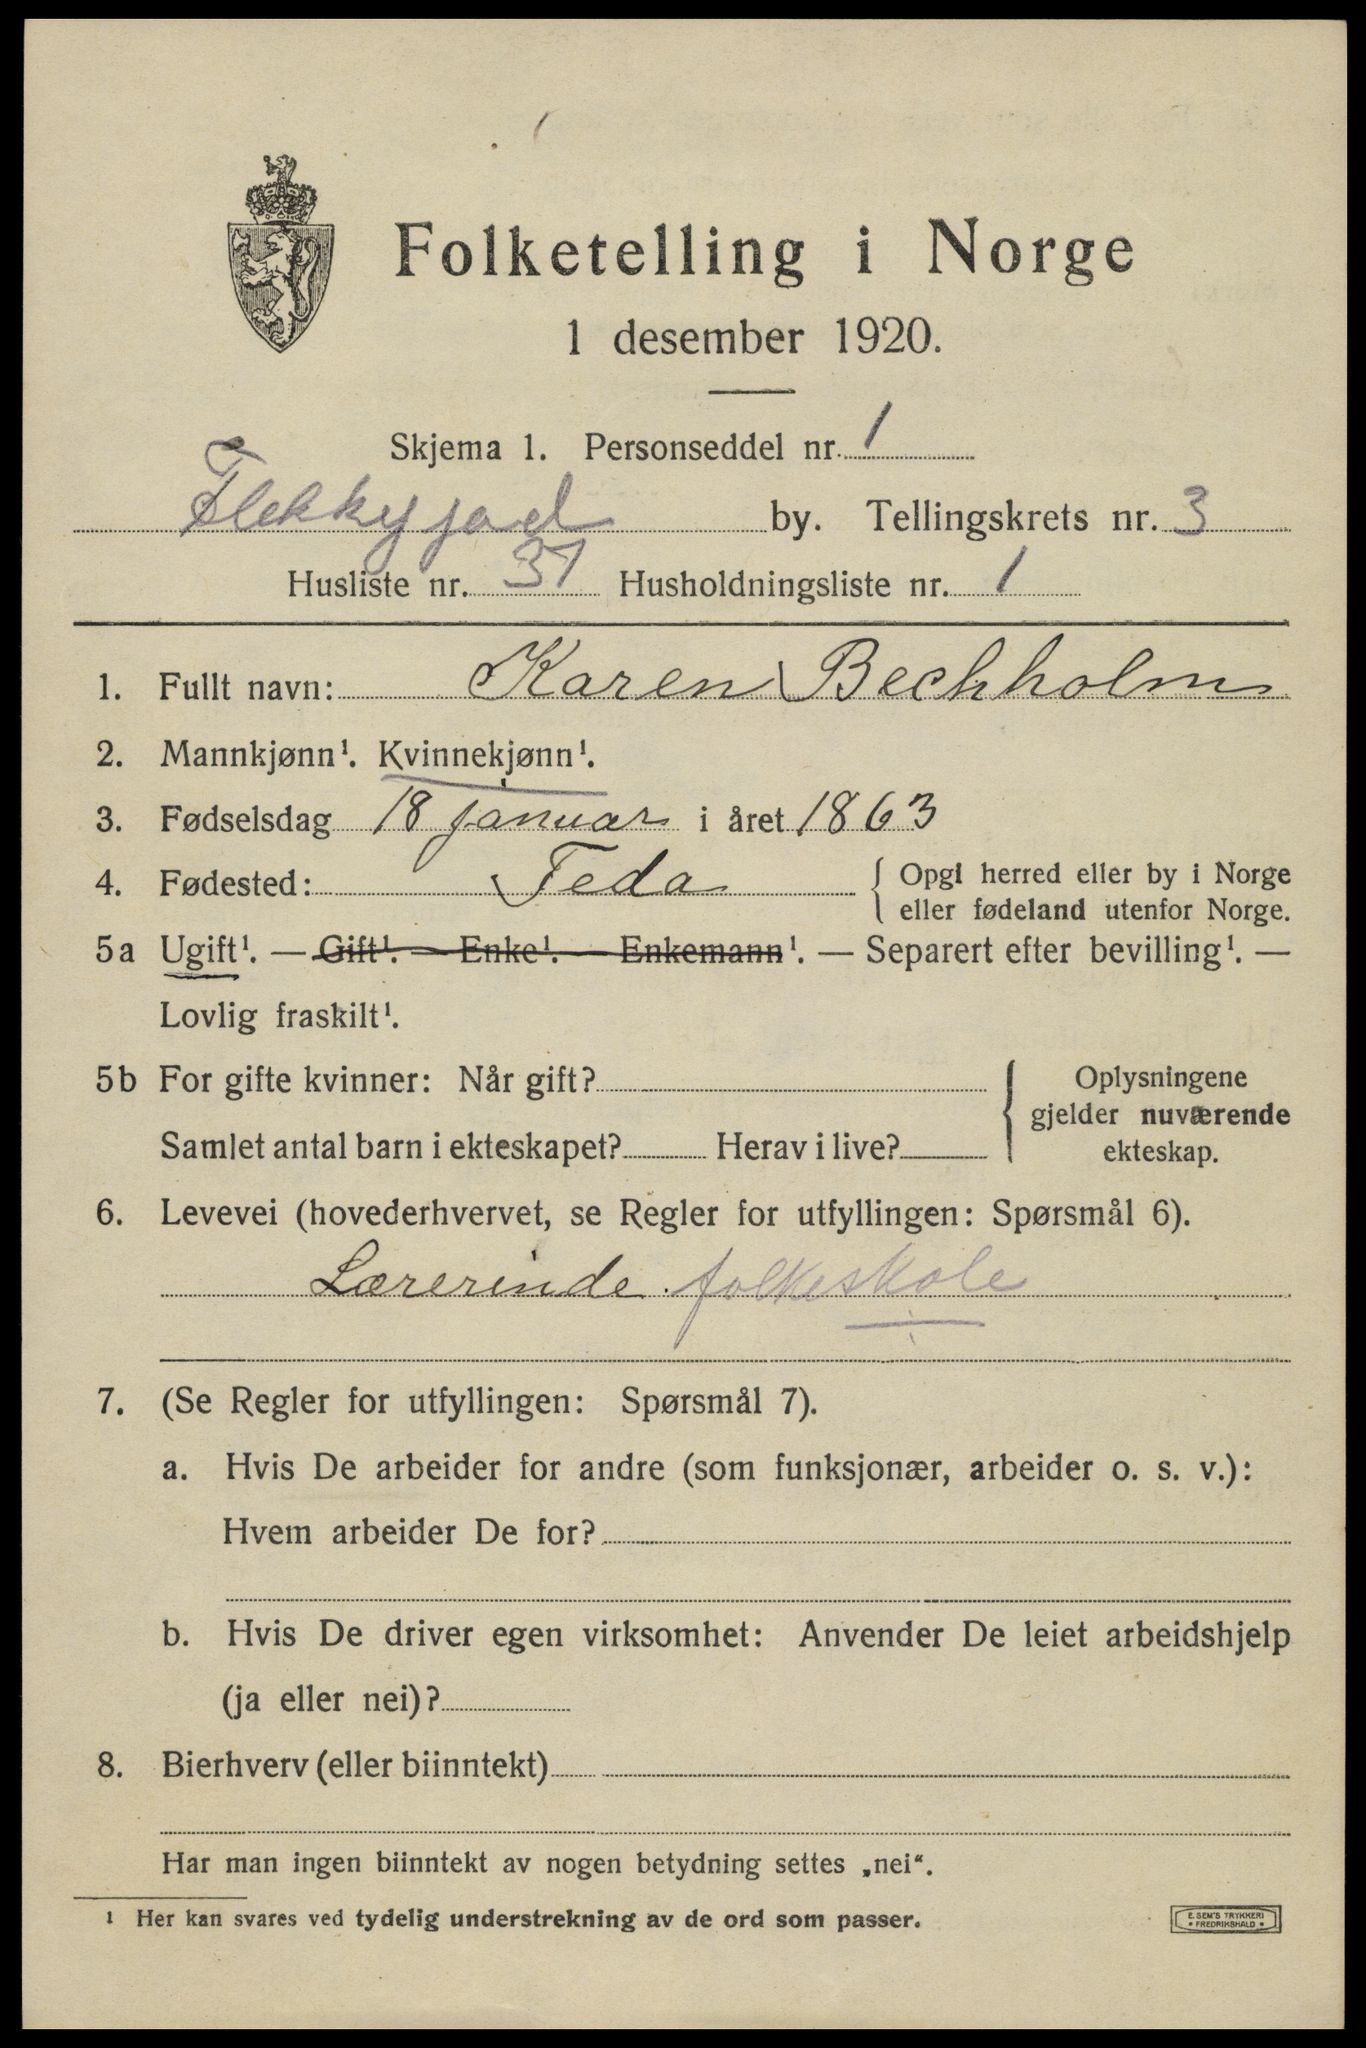 Folketelling i Norge
1 desember 1920.
Skjema 1. Personseddel nr. 1
Flekkefjord by. Tellingskrets nr. 3
Husliste nr. 37 Husholdningsliste nr. 1
1. Fullt navn: Karen Bechholm
2. Mannkjønn¹. Kvinnekjønn¹.
3. Fødselsdag 18 januar i året 1863
4. Fødested: Feda { Opgi herred eller by i Norge
eller fødeland utenfor Norge.
5a Ugift¹. — Gift¹. — Enke¹. — Enkemann¹. — Separert efter bevilling¹. —
Lovlig fraskilt¹.
5b For gifte kvinner: Når gift? { Oplysningene
gjelder nuværende
Samlet antal barn i ekteskapet? Herav i live? ekteskap.
6. Levevei (hovederhvervet, se Regler for utfyllingen: Spørsmål 6).
Lærerinde folkeskole
7. (Se Regler for utfyllingen: Spørsmål 7).
a. Hvis De arbeider for andre (som funksjonær, arbeider o. s. v.):
Hvem arbeider De for?
b. Hvis De driver egen virksomhet: Anvender De leiet arbeidshjelp
(ja eller nei)?
8. Bierhverv (eller biinntekt)
Har man ingen biinntekt av nogen betydning settes „nei“.
¹ Her kan svares ved tydelig understrekning av de ord som passer.
E. SEM'S TRYKKERI
• FREDRIKSHALD •